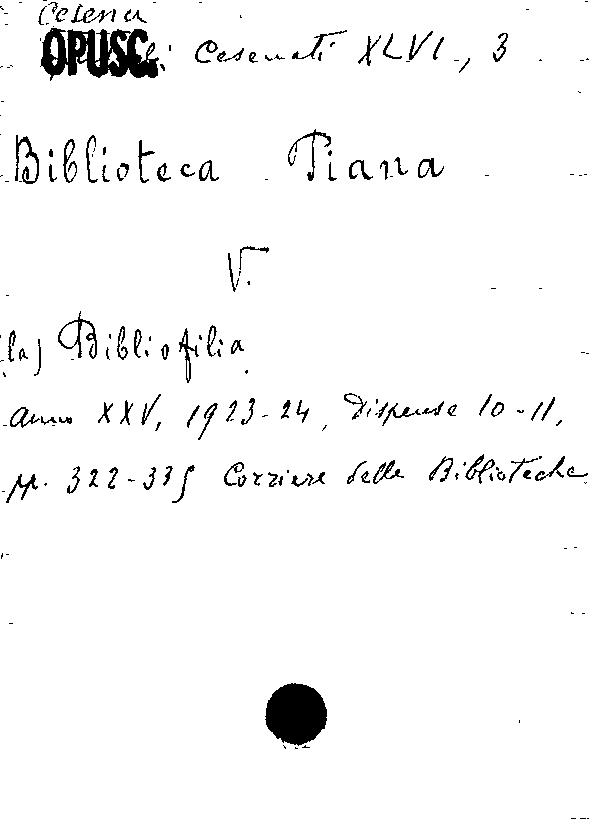 Cesena
OPUSC. Cesenati XLVI, 3
Biblioteca Piana
V.
(la) Bibliofilia
anno XXV, 1923-24, Dispense 10-11,
pp. 322-335 Corriere delle Biblioteche